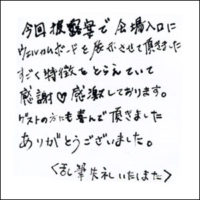 今回披露宴で会場入口に
ウェルカムボードを展示させて頂きました
すごく特徴をとらえていて
感謝♡感激しております。
ゲストの方にも喜んで頂きました
ありがとうございました。
<乱筆失礼いたしました>